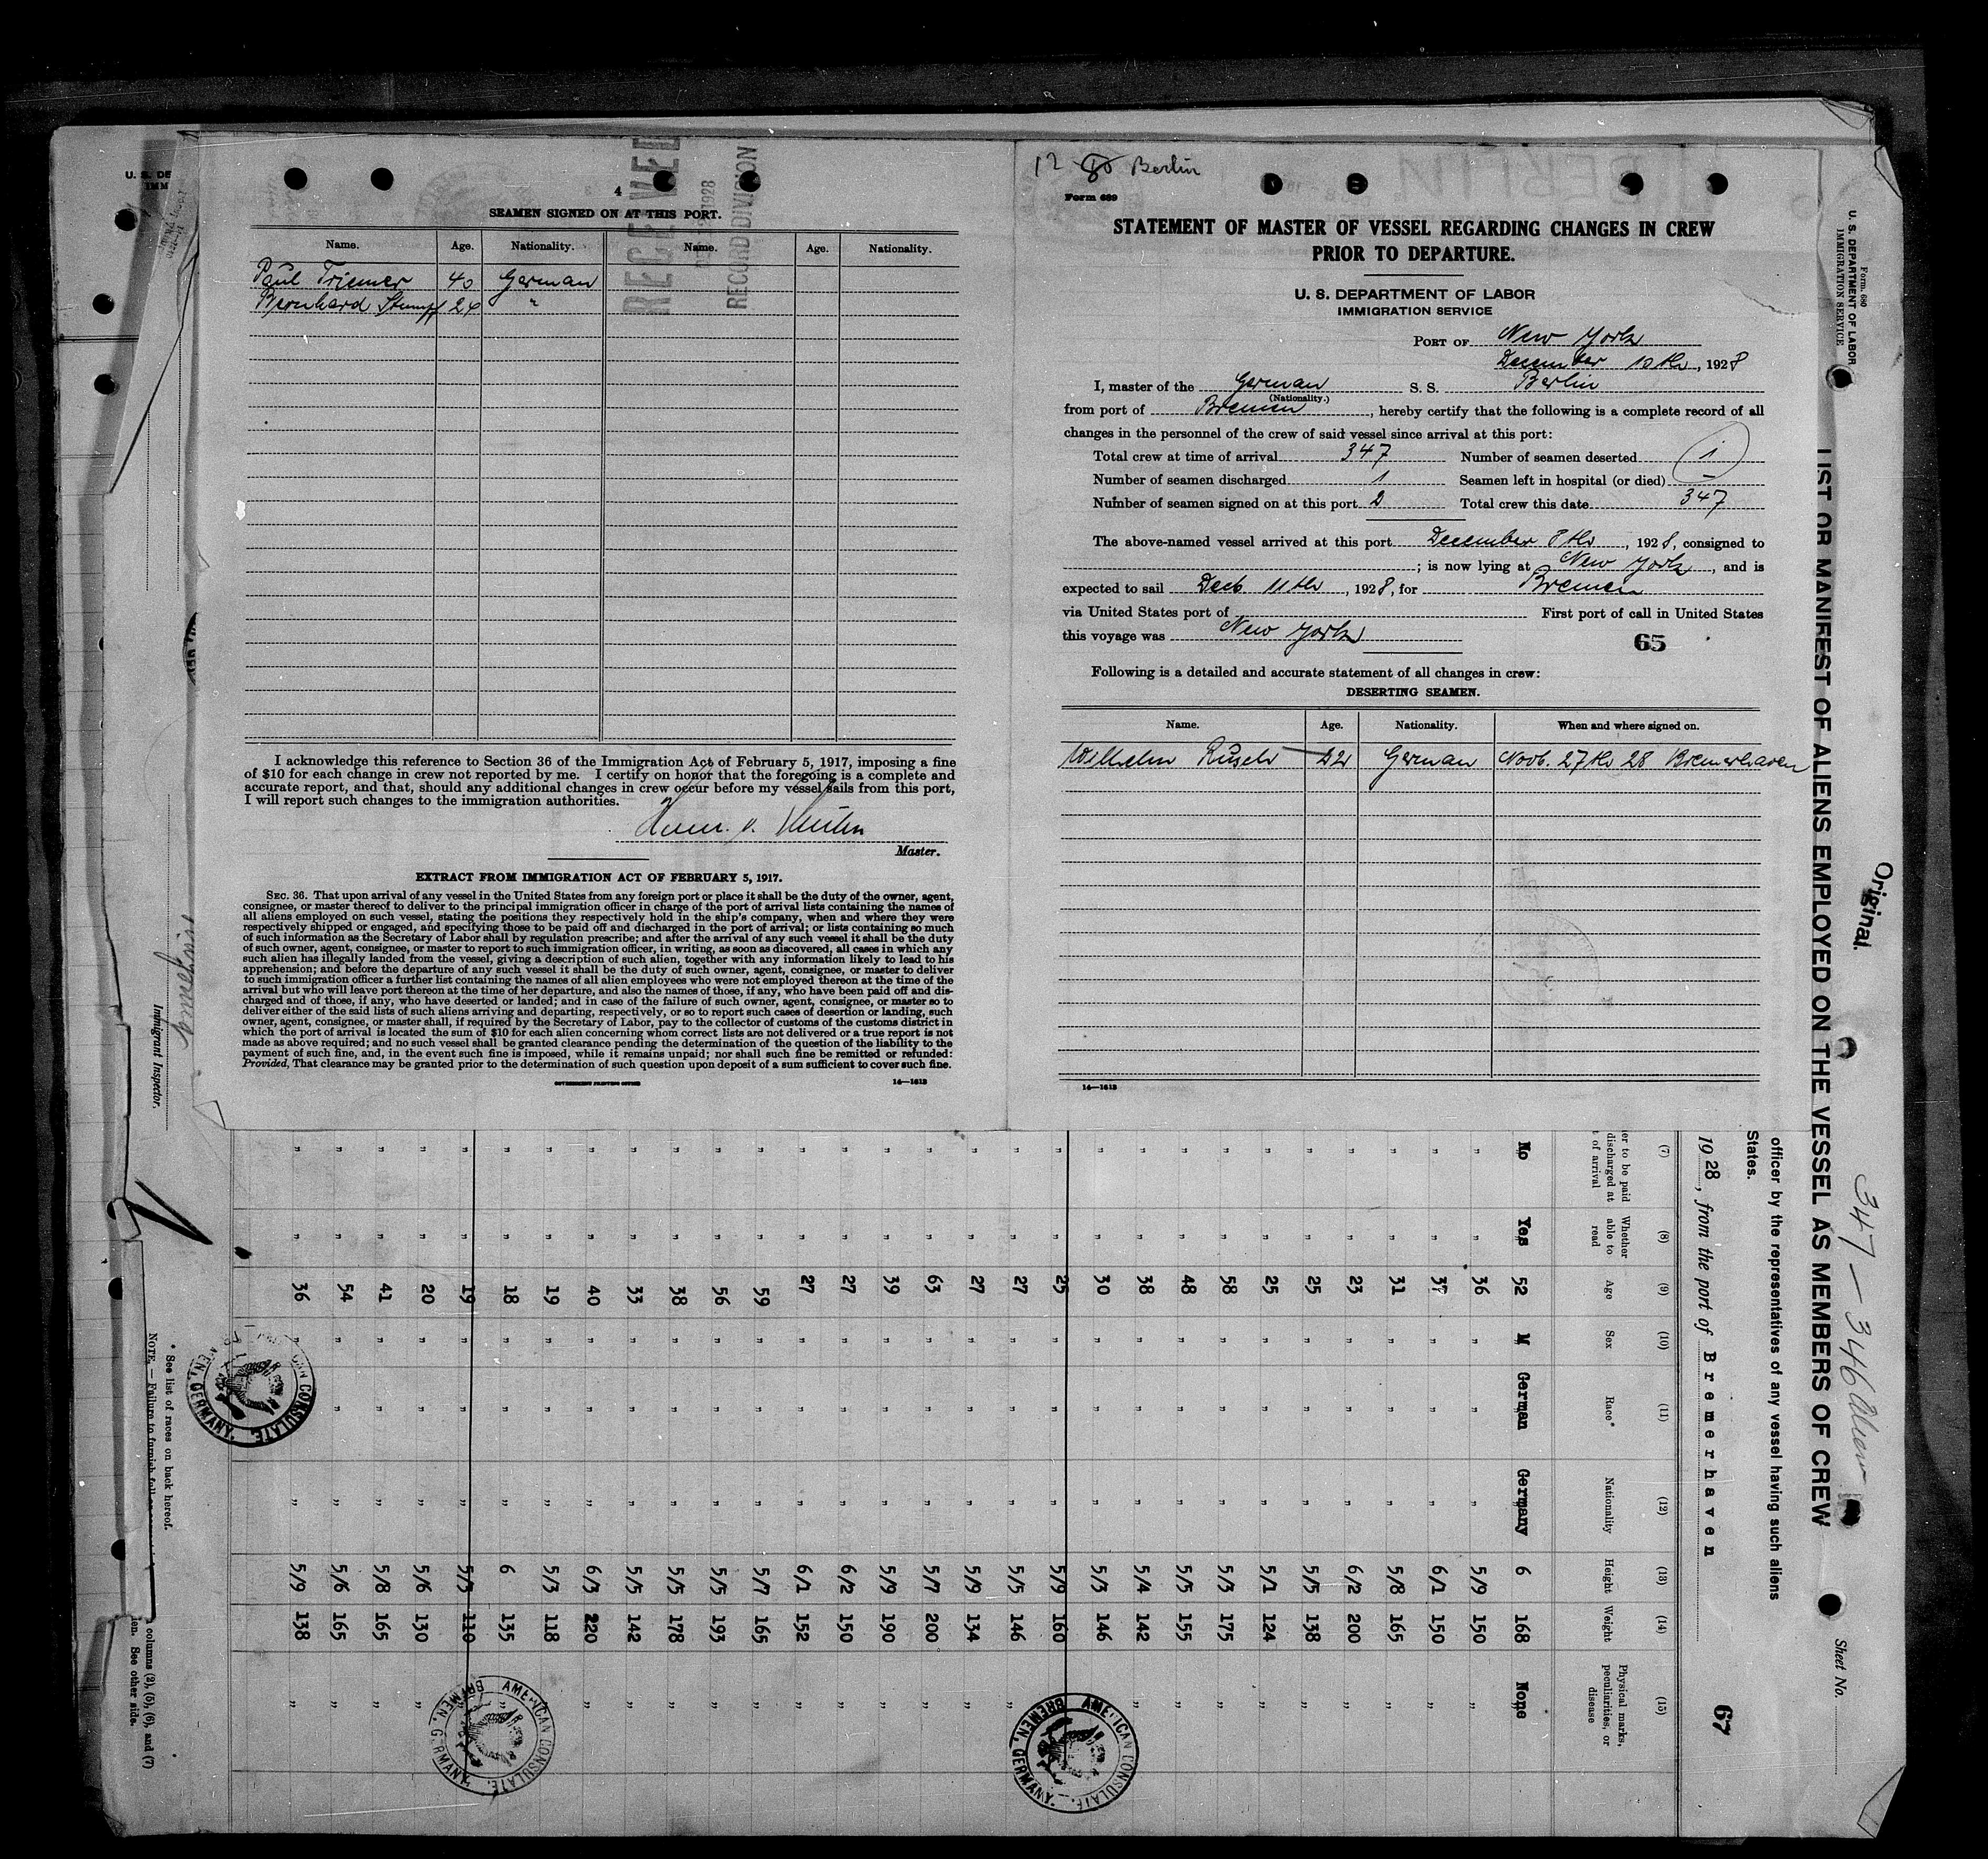 4
SEAMEN SIGNED ON AT THIS PORT.
Name. Age. Nationality. Name. Age. Nationality.
Paul Triemer 40 German
Bernhard Stumpf 24 "
RECEIVED
1928
RECORD DIVISION
I acknowledge this reference to Section 36 of the Immigration Act of February 5, 1917, imposing a fine
of $10 for each change in crew not reported by me. I certify on honor that the foregoing is a complete and
accurate report, and that, should any additional changes in crew occur before my vessel sails from this port,
I will report such changes to the immigration authorities.
Master.
EXTRACT FROM IMMIGRATION ACT OF FEBRUARY 5, 1917.
SEC. 36. That upon arrival of any vessel in the United States from any foreign port or place it shall be the duty of the owner, agent,
consignee, or master thereof to deliver to the principal immigration officer in charge of the port of arrival lists containing the names of
all aliens employed on such vessel, stating the positions they respectively hold in the ship's company, when and where they were
respectively shipped or engaged, and specifying those to be paid off and discharged in the port of arrival; or lists containing so much
of such information as the Secretary of Labor shall by regulation prescribe; and after the arrival of any such vessel it shall be the duty
of such owner, agent, consignee, or master to report to such immigration officer, in writing, as soon as discovered, all cases in which any
such alien has illegally landed from the vessel, giving a description of such alien, together with any information likely to lead to his
apprehension; and before the departure of any such vessel it shall be the duty of such owner, agent, consignee, or master to deliver
to such immigration officer a further list containing the names of all alien employees who were not employed thereon at the time of the
arrival but who will leave port thereon at the time of her departure, and also the names of those, if any, who have been paid off and dis-
charged and of those, if any, who have deserted or landed; and in case of the failure of such owner, agent, consignee, or master so to
deliver either of the said lists of such aliens arriving and departing, respectively, or so to report such cases of desertion or landing, such
owner, agent, consignee, or master shall, if required by the Secretary of Labor, pay to the collector of customs of the customs district in
which the port of arrival is located the sum of $10 for each alien concerning whom correct lists are not delivered or a true report is not
made as above required; and no such vessel shall be granted clearance pending the determination of the question of the liability to the
payment of such fine, and, in the event such fine is imposed, while it remains unpaid; nor shall such fine be remitted or refunded:
Provided, That clearance may be granted prior to the determination of such question upon deposit of a sum sufficient to cover such fine.
GOVERNMENT PRINTING OFFICE 14—1613
12 80 Berlin
Form 689
STATEMENT OF MASTER OF VESSEL REGARDING CHANGES IN CREW
PRIOR TO DEPARTURE.
U. S. DEPARTMENT OF LABOR
IMMIGRATION SERVICE
PORT OF New York
December 10th, 1928
I, master of the German S. S. Berlin
(Nationality.)
from port of Bremen, hereby certify that the following is a complete record of all
changes in the personnel of the crew of said vessel since arrival at this port:
Total crew at time of arrival 347 Number of seamen deserted 1
Number of seamen discharged 1 Seamen left in hospital (or died) —
Number of seamen signed on at this port 2 Total crew this date 347
The above-named vessel arrived at this port December 8th, 1928, consigned to
; is now lying at New York, and is
expected to sail Dec. 11th, 1928, for Bremen
via United States port of First port of call in United States
this voyage was New York
65
Following is a detailed and accurate statement of all changes in crew:
DESERTING SEAMEN.
Name. Age. Nationality. When and where signed on.
Wilhelm Rusch 22 German Novb. 27th 28 Bremerhaven
14—1613
Form 680
U. S. DEPARTMENT OF LABOR
IMMIGRATION SERVICE
Original.
LIST OR MANIFEST OF ALIENS EMPLOYED ON THE VESSEL AS MEMBERS OF CREW
347 — 346 Alien
Sheet No.
officer by the representatives of any vessel having such aliens
States.
1928, from the port of Bremerhaven
67
(7) (8) (9) (10) (11) (12) (13) (14) (15)
er to be paid discharged at t of arrival
Whether able to read
Age
Sex
Race*
Nationality
Height
Weight
Physical marks, peculiarities, or disease
No Yes 52 M German Germany 6 168 None
" " 36 " " " 5/9 150 "
" " 37 " " " 6/1 150 "
" " 31 " " " 5/8 165 "
" " 23 " " " 6/2 200 "
" " 25 " " " 5/5 138 "
" " 25 " " " 5/1 124 "
" " 58 " " " 5/3 175 "
" " 48 " " " 5/5 155 "
" " 38 " " " 5/4 142 "
" " 30 " " " 5/3 146
" " 25 " " " 5/9 160
" " 27 " " " 5/5 146 "
" " 27 " " " 5/9 134 "
" " 63 " " " 5/7 200 "
" " 39 " " " 5/9 190 "
" " 27 " " " 6/2 150 "
" " 27 " " " 6/1 152 "
" " 59 " " " 5/7 165 "
" " 56 " " " 5/5 193 "
" " 38 " " " 5/5 178 "
" " 33 " " " 5/5 142 "
" " 40 " " " 6/3 220 "
" " 19 " " " 5/3 118
" " 18 " " " 6 135 "
" " 19 " " " 5/3 110
" " 20 " " " 5/6 130 "
" " 41 " " " 5/8 165 "
" " 54 " " " 5/6 165 "
" " 36 " " 5/9 138 "
AMERICAN CONSULATE. BREMEN, GERMANY.
AMERICAN CONSULATE. BREMEN, GERMANY.
AMERICAN CONSULATE. BREMEN, GERMANY.
* See list of races on back hereof.
NOTE.—Failure to furnish full
columns (2), (5), (6), and (7)
ion. See other side.
Immigrant Inspector.
U. S. DE
IMM